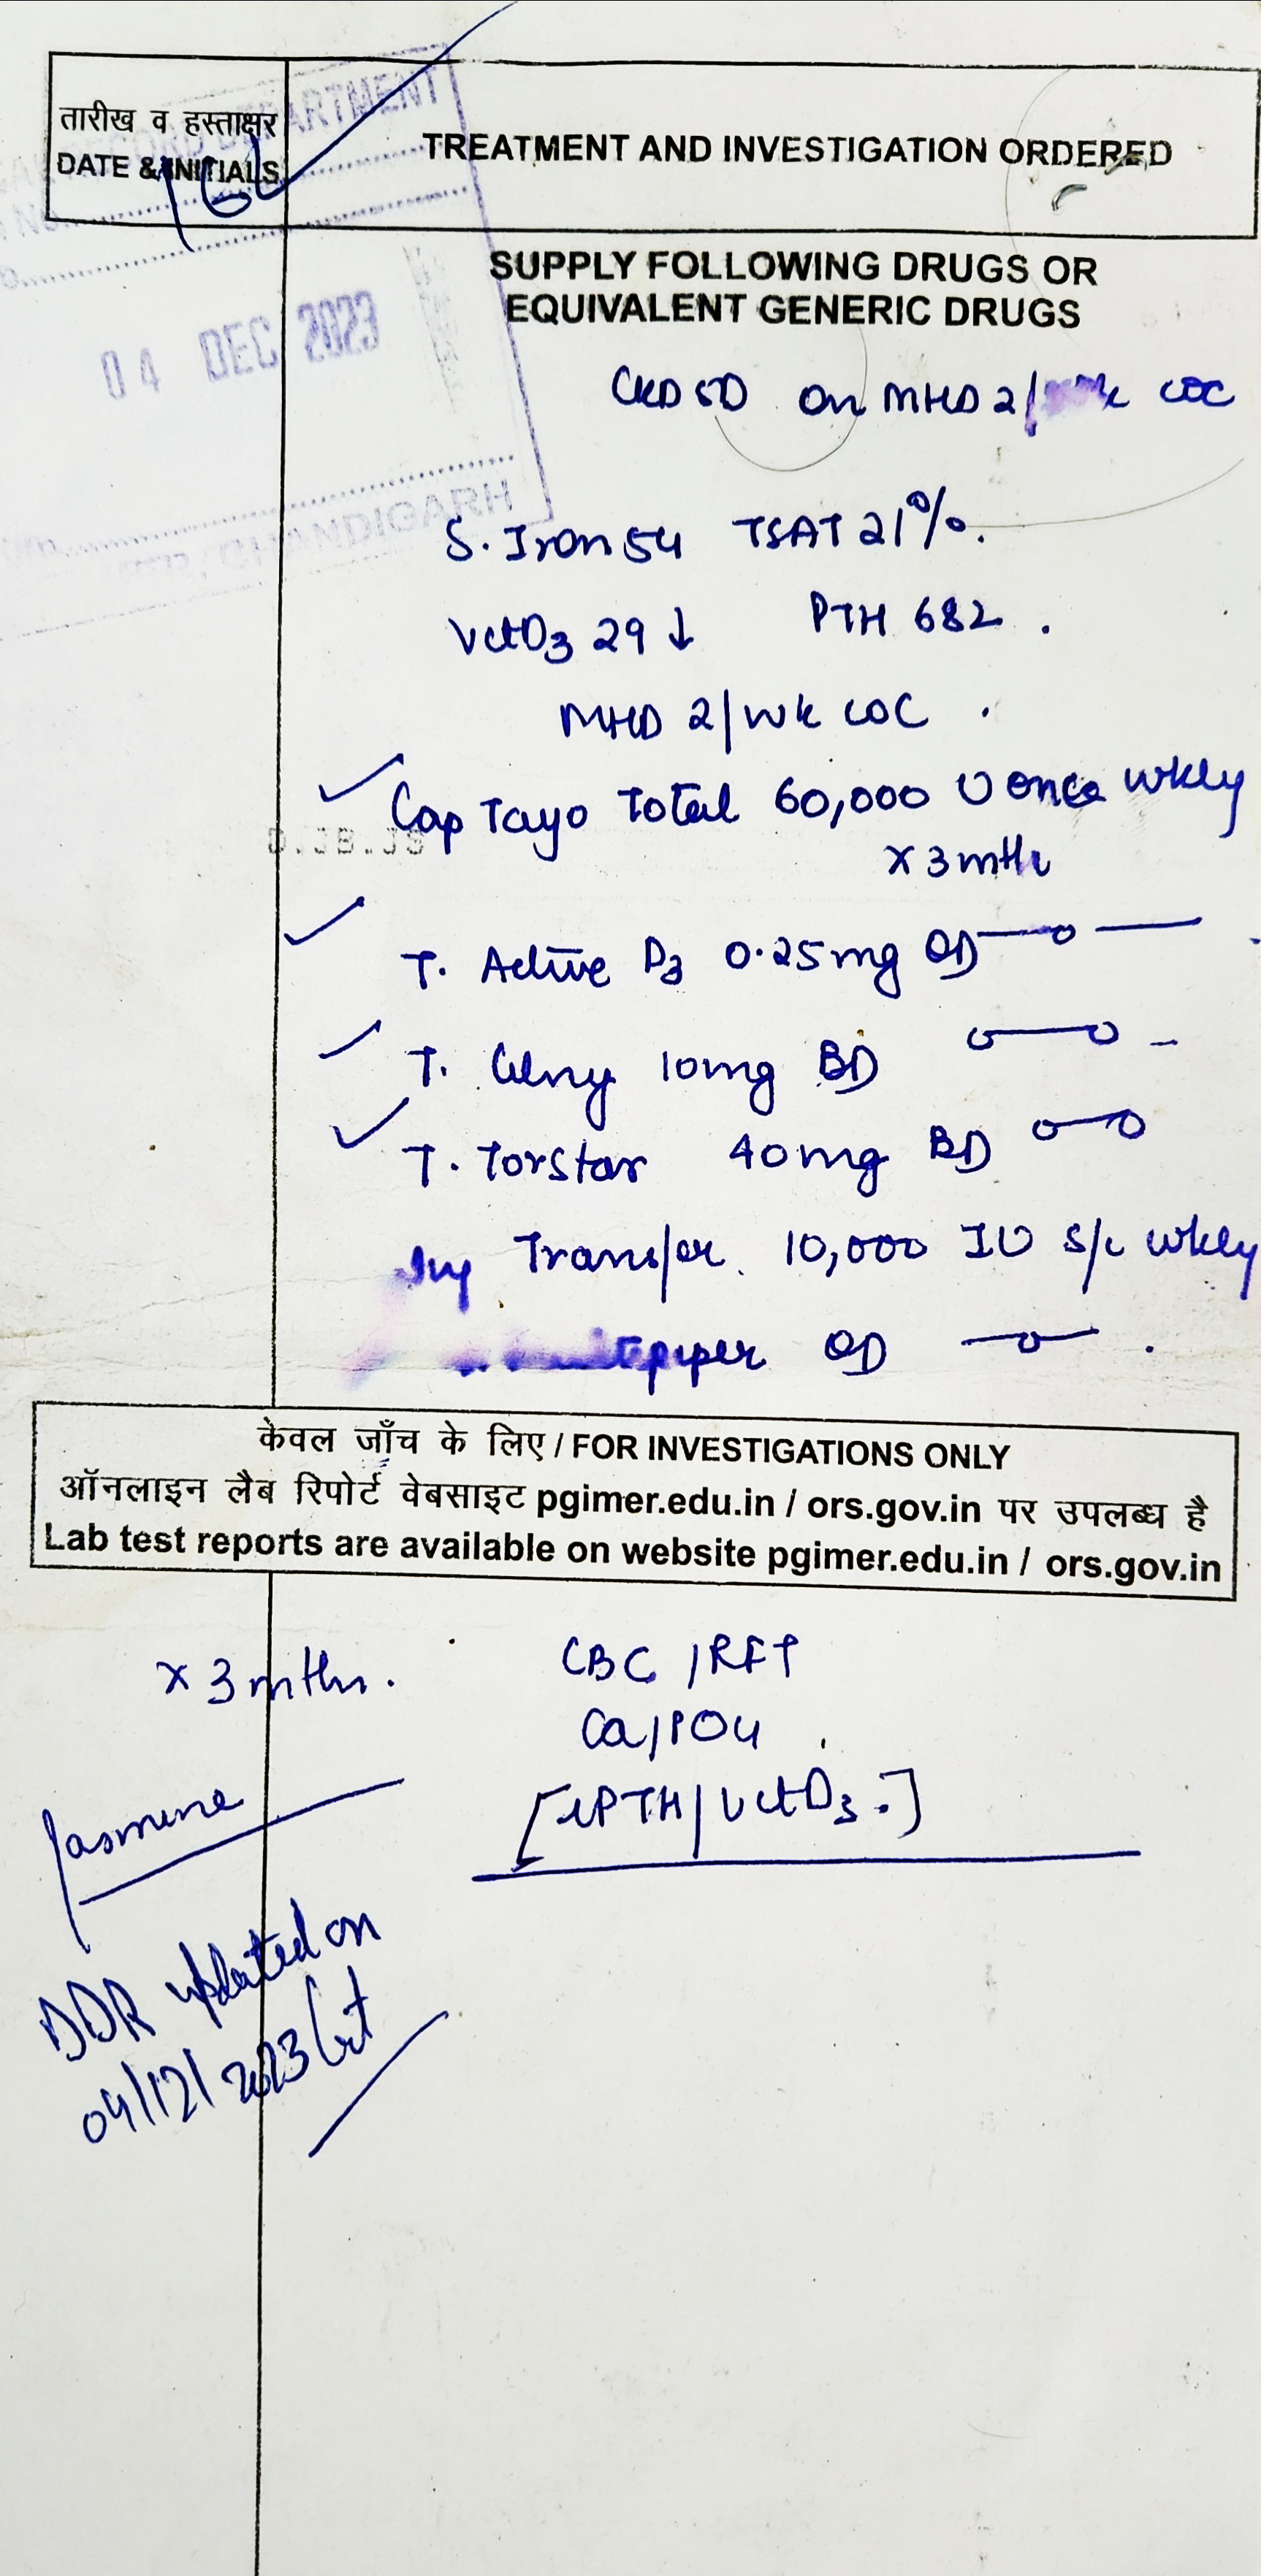 तारीख व हस्ताक्षर
DATE & INITIALS
TREATMENT AND INVESTIGATION ORDERED
04 DEC 2023
CHANDIGARH
SUPPLY FOLLOWING DRUGS OR
EQUIVALENT GENERIC DRUGS
CKD 5D on MHD 2/ COC
S. Iron 54 TSAT 21%.
VitD3 29 ↓ PTH 682.
MHD 2/wk COC.
Cap Tayo Total 60,000 U once wkly
x 3 mth
T. Active D3 0.25mg OD
T. 10mg BD
T. Torstar 40mg BD
Inj Transfer 10,000 IU S/c wkly
OD
केवल जाँच के लिए / FOR INVESTIGATIONS ONLY
ऑनलाइन लैब रिपोर्ट वेबसाइट pgimer.edu.in / ors.gov.in पर उपलब्ध है
Lab test reports are available on website pgimer.edu.in / ors.gov.in
x 3 mths.
CBC / RFT
Ca / PO4
[iPTH / VitD3.]
Jasmine
DDR updated on
04/12/2023